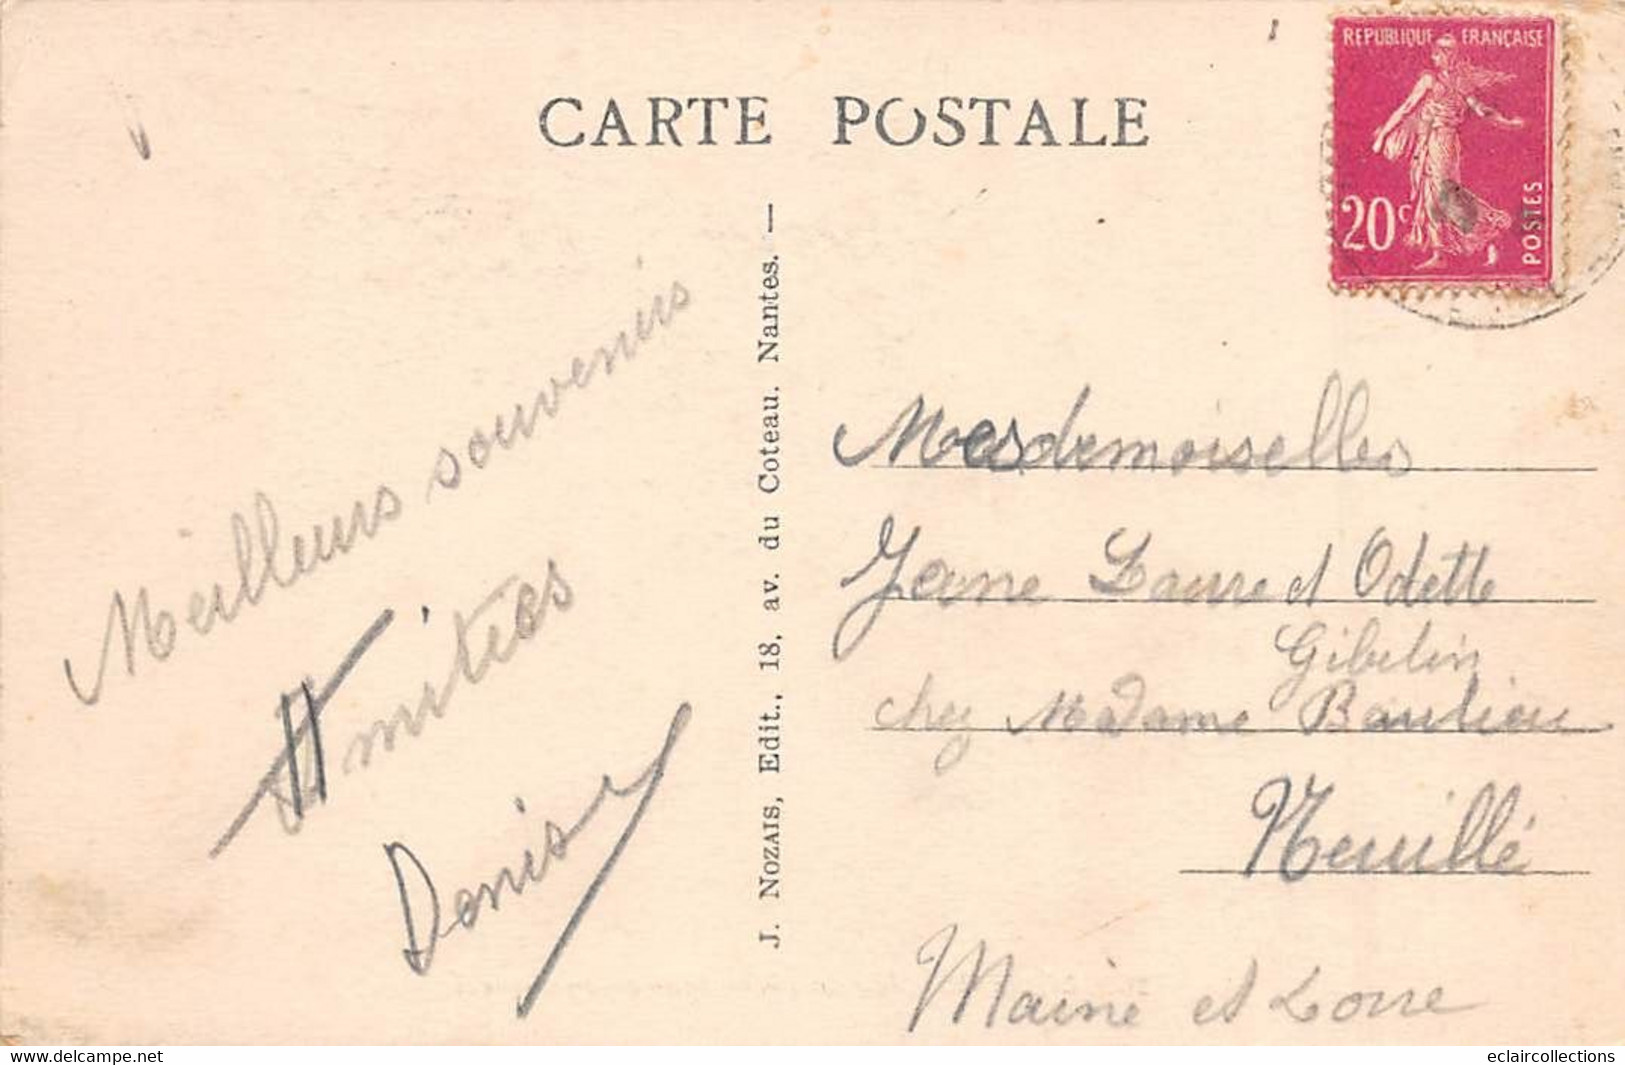 CARTE POSTALE
REPUBLIQUE FRANÇAISE
20c
POSTES
Meilleurs souvenirs
Amitiés
Denise
J. NOZAIS, Edit., 18, av. du Coteau. Nantes. —
Mesdemoiselles
Jane Laure et Odette
Gibelin
chez Madame
Neuillé
Maine et Loire
delcampe.net
eclaircollections